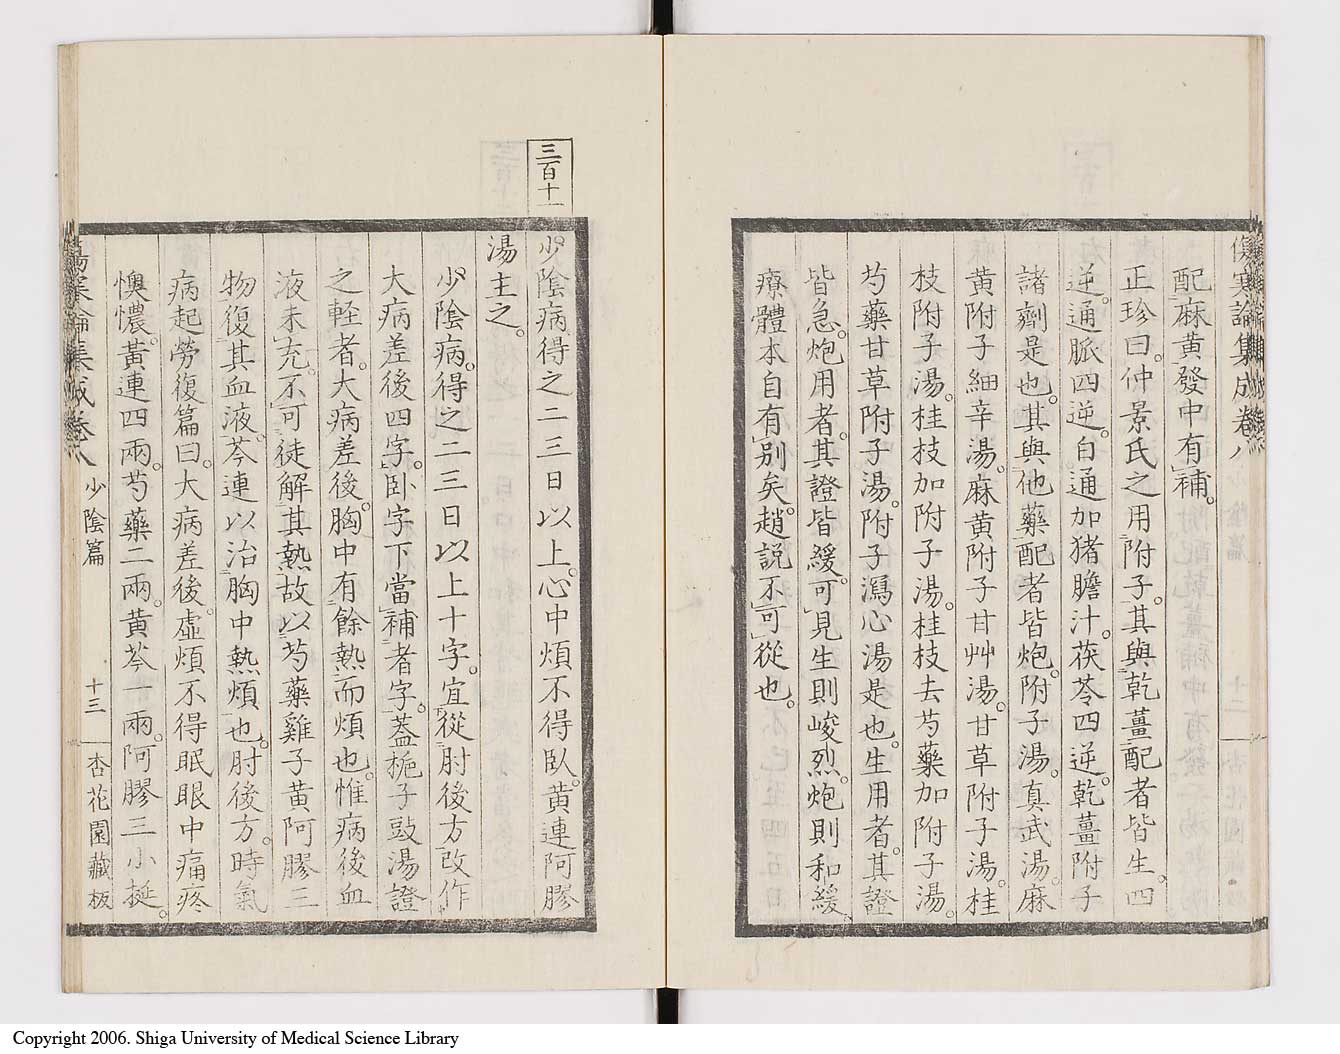 傷寒論集成卷八
配麻黃發中有補。
正珍曰。仲景氏之用附子。其與乾薑配者皆生。四
逆。通脈四逆。白通加猪膽汁。茯苓四逆。乾薑附子
諸劑是也。其與他藥配者皆炮。附子湯。真武湯。麻
黃附子細辛湯。麻黃附子甘艸湯。甘草附子湯。桂
枝附子湯。桂枝加附子湯。桂枝去芍藥加附子湯。
芍藥甘草附子湯。附子瀉心湯是也。生用者。其證
皆急。炮用者。其證皆緩。可見生則峻烈。炮則和緩。
療體本自有別矣。趙說不可從也。
三百十一
少陰病得之二三日以上。心中煩不得臥。黃連阿膠
湯主之。
少陰病。得之二三日以上十字。宜從肘後方改作
大病差後四字。臥字下當補者字。蓋梔子豉湯證
之輕者。大病差後。胸中有餘熱而煩也。惟病後血
液未充。不可徒解其熱。故以芍藥雞子黃阿膠三
物復其血液。芩連以治胸中熱煩也。肘後方。時氣
病起勞復篇曰。大病差後。虛煩不得眠。眼中痛疼
懊憹。黃連四兩。芍藥二兩。黃芩一兩。阿膠三小挺。
傷寒論集成卷八 少陰篇 十三 杏花園藏板
Copyright 2006. Shiga University of Medical Science Library